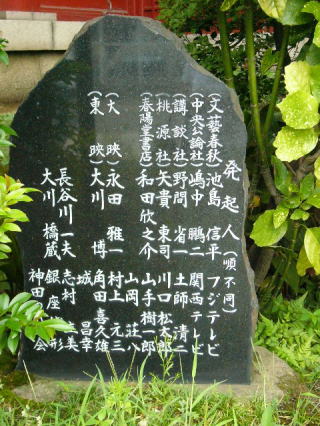 発起人（順不同）
（文藝春秋）池島 信平 フジテレビ
（中央公論社）嶋中 鵬二 関西テレビ
（講談社）野間 省一 土師 清二
（桃源社）矢貴 東司 川口 松太郎
（春陽堂書店）和田欣之介 山手樹一郎
山岡 荘八
（大映）永田 雅一 村上 元三
（東映）大川 博 角田喜久雄
城 昌幸
長谷川一夫 志村
大川 橋蔵 銀座
神田 会